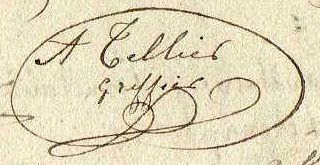 A Tellier
Greffier